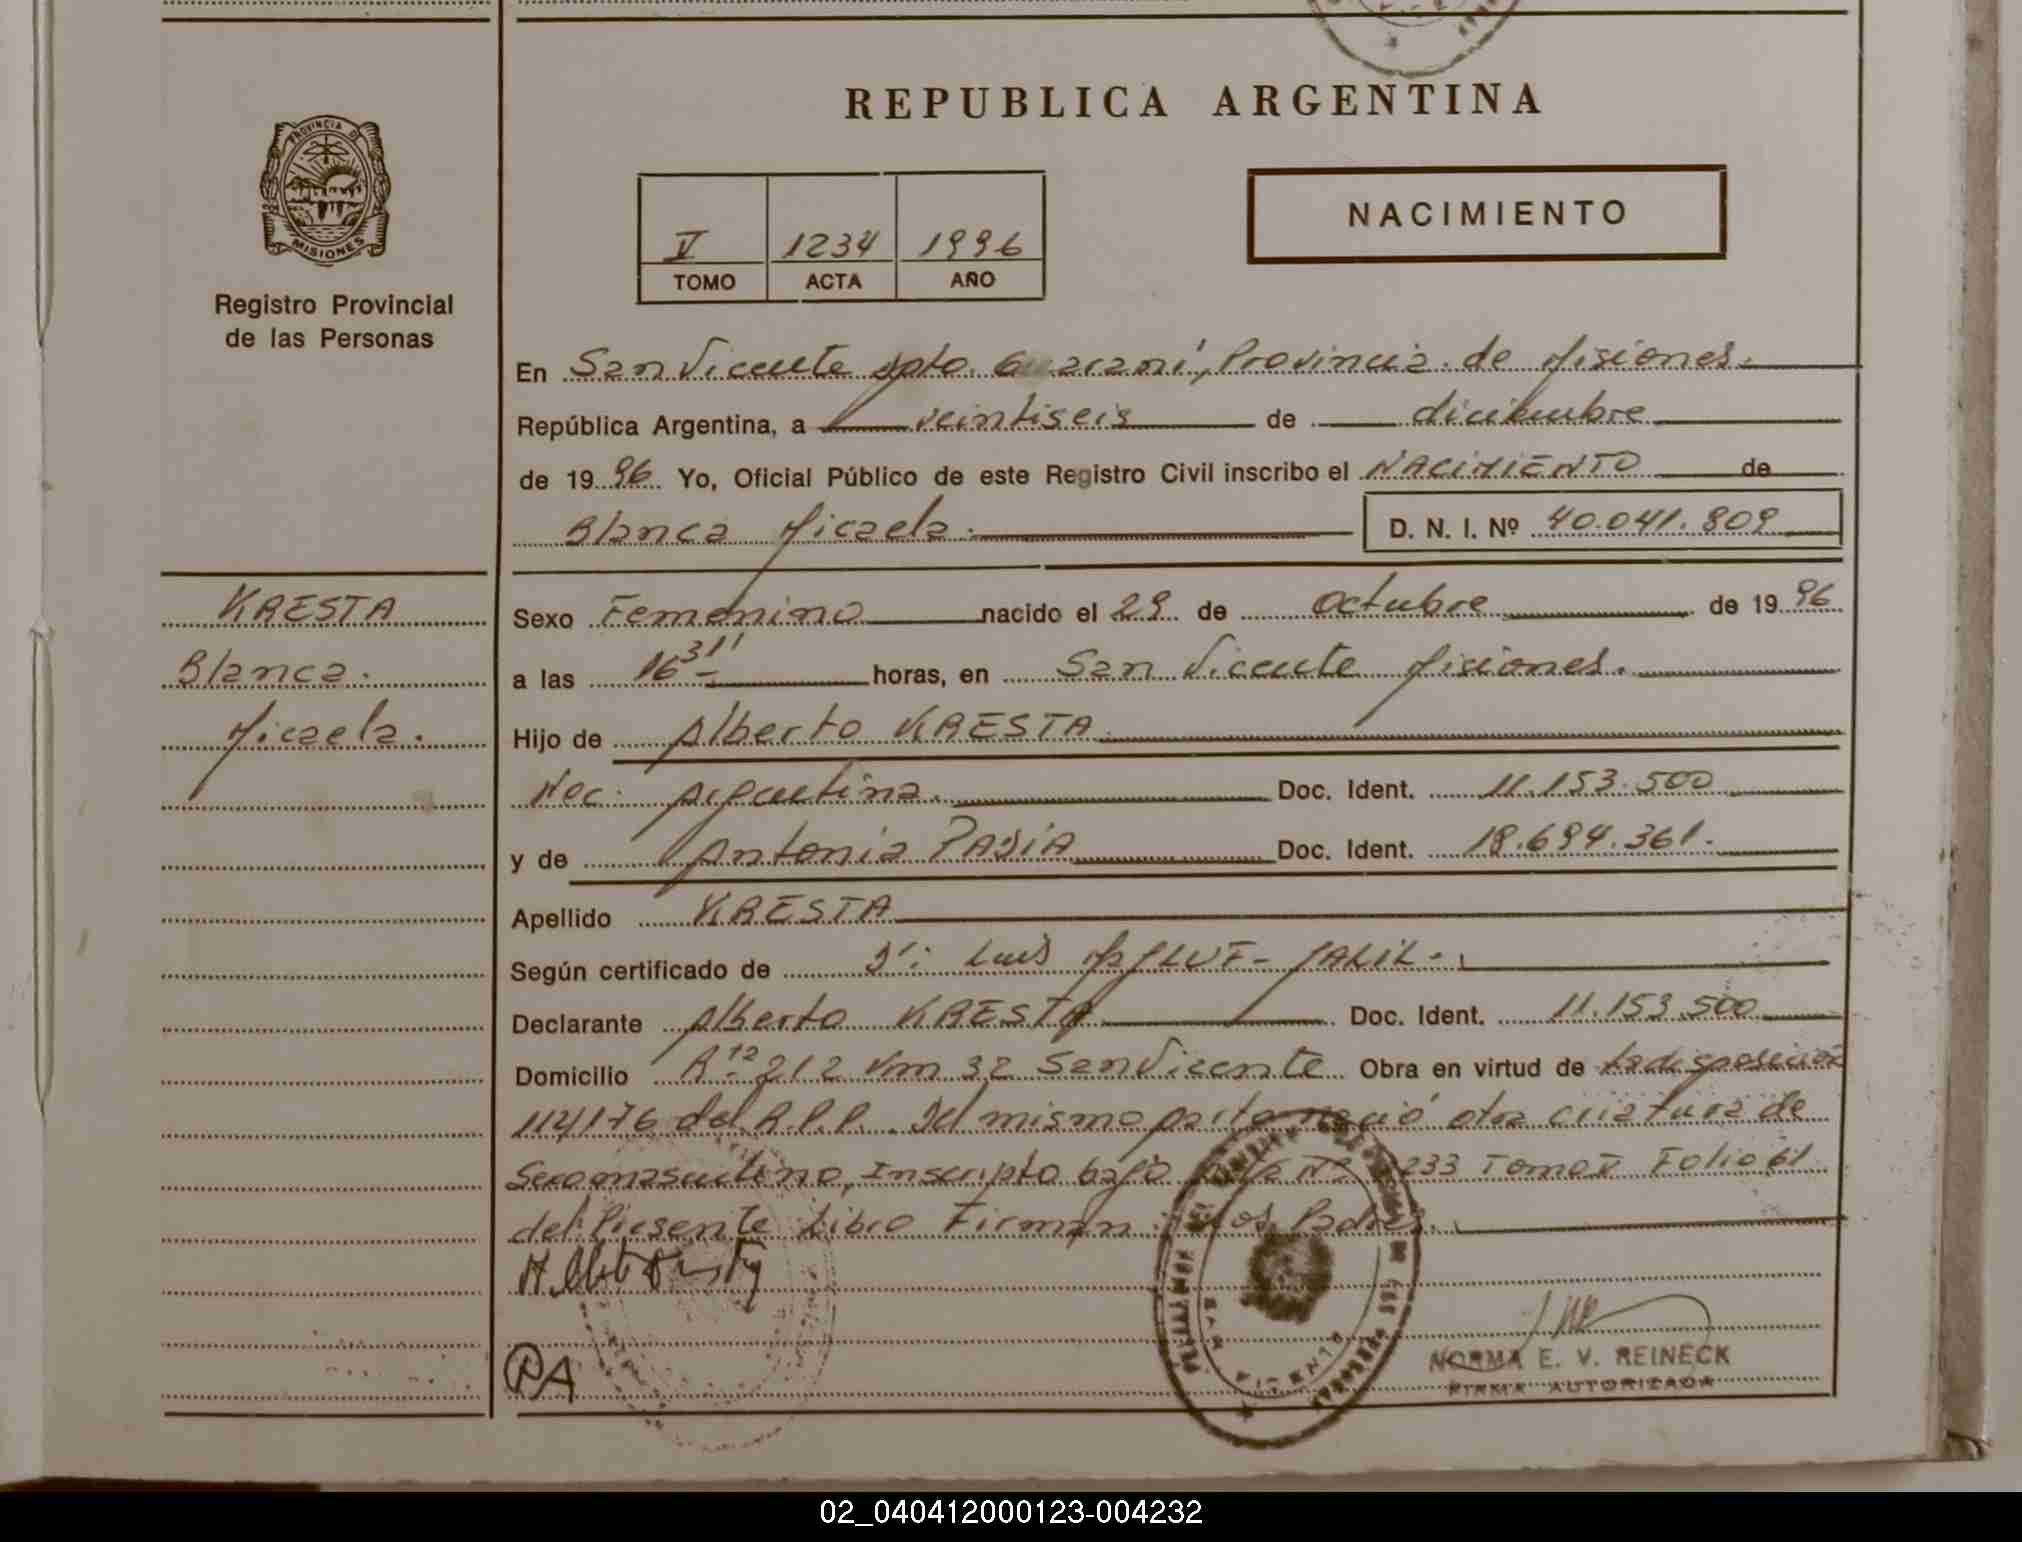 REPUBLICA ARGENTINA
PROVINCIA DE
MISIONES
Registro Provincial
de las Personas
NACIMIENTO
V 1234 1996
TOMO ACTA AÑO
En San Vicente Dpto. Guaraní, Provincia de Misiones.
República Argentina, a veintiseis de diciembre
de 1996 Yo, Oficial Público de este Registro Civil inscribo el NACIMIENTO de
Blanca Micaela. D. N. I. Nº 40.041.809
KRESTA
Blanca.
Micaela.
Sexo Femenino nacido el 29 de Octubre de 1996
a las 16 31' horas, en San Vicente Misiones.
Hijo de Alberto KRESTA
Nac. Argentina. Doc. Ident. 11.153.500
y de Antonia Doc. Ident. 18.694.361.
Apellido KRESTA
Según certificado de Dr. Luis JALIL.
Declarante Alberto KRESTA Doc. Ident. 11.153.500
Domicilio 212 Km 32 San Vicente Obra en virtud de la disposición
112/176 del R.P.P. Del mismo parto nació otra criatura de
Sexo masculino, Inscripto bajo Nº 1233 Tomo V Folio 61
del Presente Libro Firman: Los Padres.
NORMA E. V. REINECK
FIRMA AUTORIZADA
02_040412000123-004232